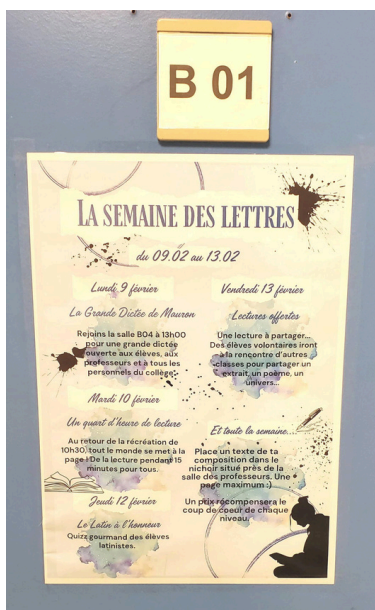 B 01
LA SEMAINE DES LETTRES
du 09.02 au 13.02
Lundi 9 février
La Grande Dictée de Mauron
Rejoins la salle B04 à 13h00
pour une grande dictée
ouverte aux élèves, aux
professeurs et à tous les
personnels du collège.
Mardi 10 février
Un quart d'heure de lecture
Au retour de la récréation de
10h30, tout le monde se met à la
page ! De la lecture pendant 15
minutes pour tous.
Jeudi 12 février
Le Latin à l'honneur
Quizz gourmand des élèves
latinistes.
Vendredi 13 février
Lectures offertes
Une lecture à partager...
Des élèves volontaires iront
à la rencontre d'autres
classes pour partager un
extrait, un poème, un
univers...
Et toute la semaine....
Place un texte de ta
composition dans le
nichoir situé près de la
salle des professeurs. Une
page maximum :)
Un prix récompensera le
coup de coeur de chaque
niveau.